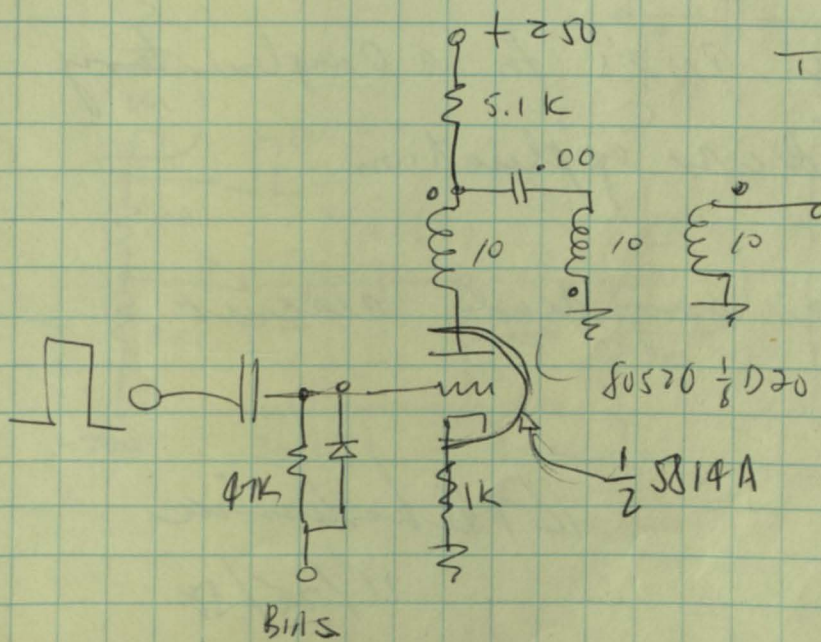 + 250
5.1 K
.00
10
10
10
80520 1/8 D20
1/2 5814A
47K
1K
BIAS